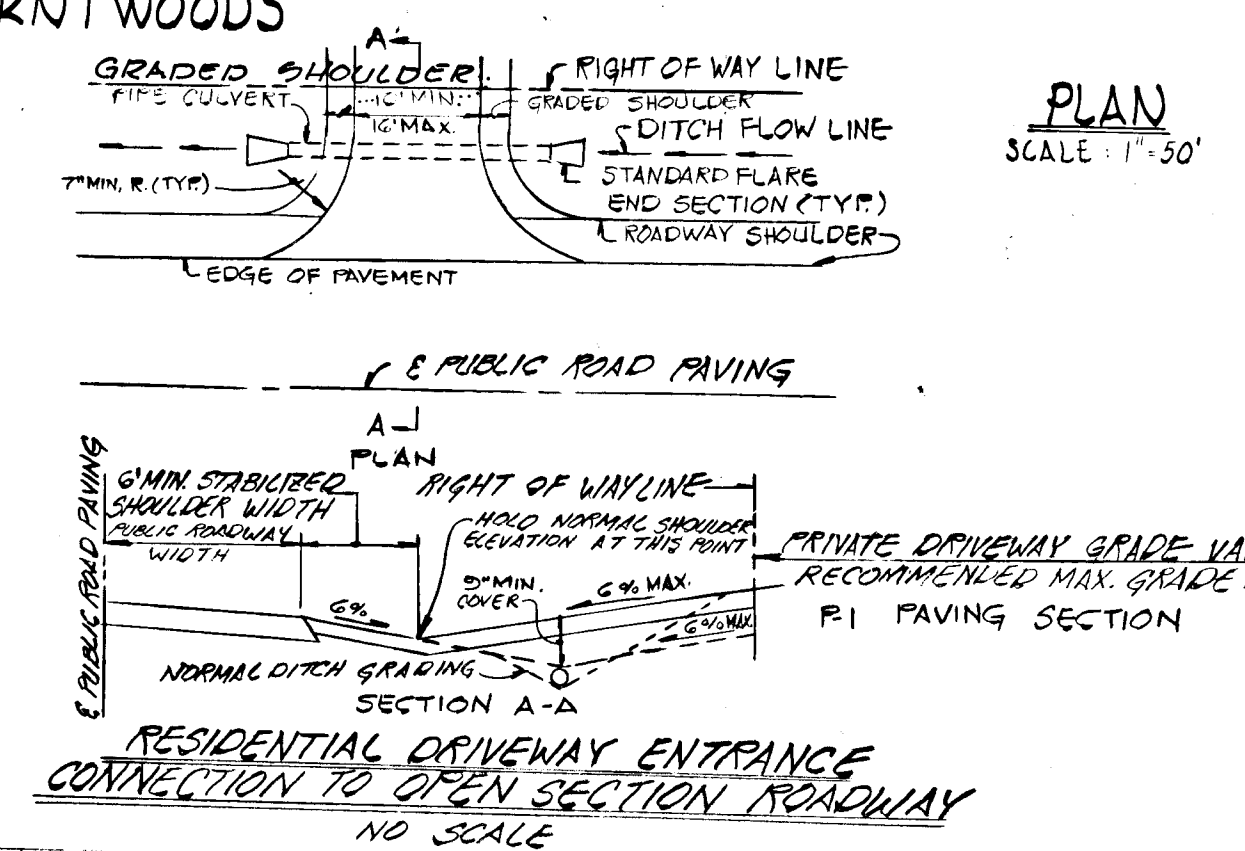 RNTWOODS
A
GRADED SHOULDER
RIGHT OF WAY LINE
PIPE CULVERT
MIN.
GRADED SHOULDER
16' MAX.
DITCH FLOW LINE
7" MIN. R. (TYP.)
STANDARD FLARE
END SECTION (TYP.)
ROADWAY SHOULDER
EDGE OF PAVEMENT
PLAN
SCALE : 1"=50'
℄ PUBLIC ROAD PAVING
A
PLAN
℄ PUBLIC ROAD PAVING
6' MIN. STABILIZED
SHOULDER WIDTH
PUBLIC ROADWAY
WIDTH
RIGHT OF WAY LINE
HOLD NORMAL SHOULDER
ELEVATION AT THIS POINT
PRIVATE DRIVEWAY GRADE VA
RECOMMENDED MAX. GRADE
P-1 PAVING SECTION
9" MIN.
COVER
6% MAX.
6%
6% MAX.
NORMAL DITCH GRADING
SECTION A-A
RESIDENTIAL DRIVEWAY ENTRANCE
CONNECTION TO OPEN SECTION ROADWAY
NO SCALE